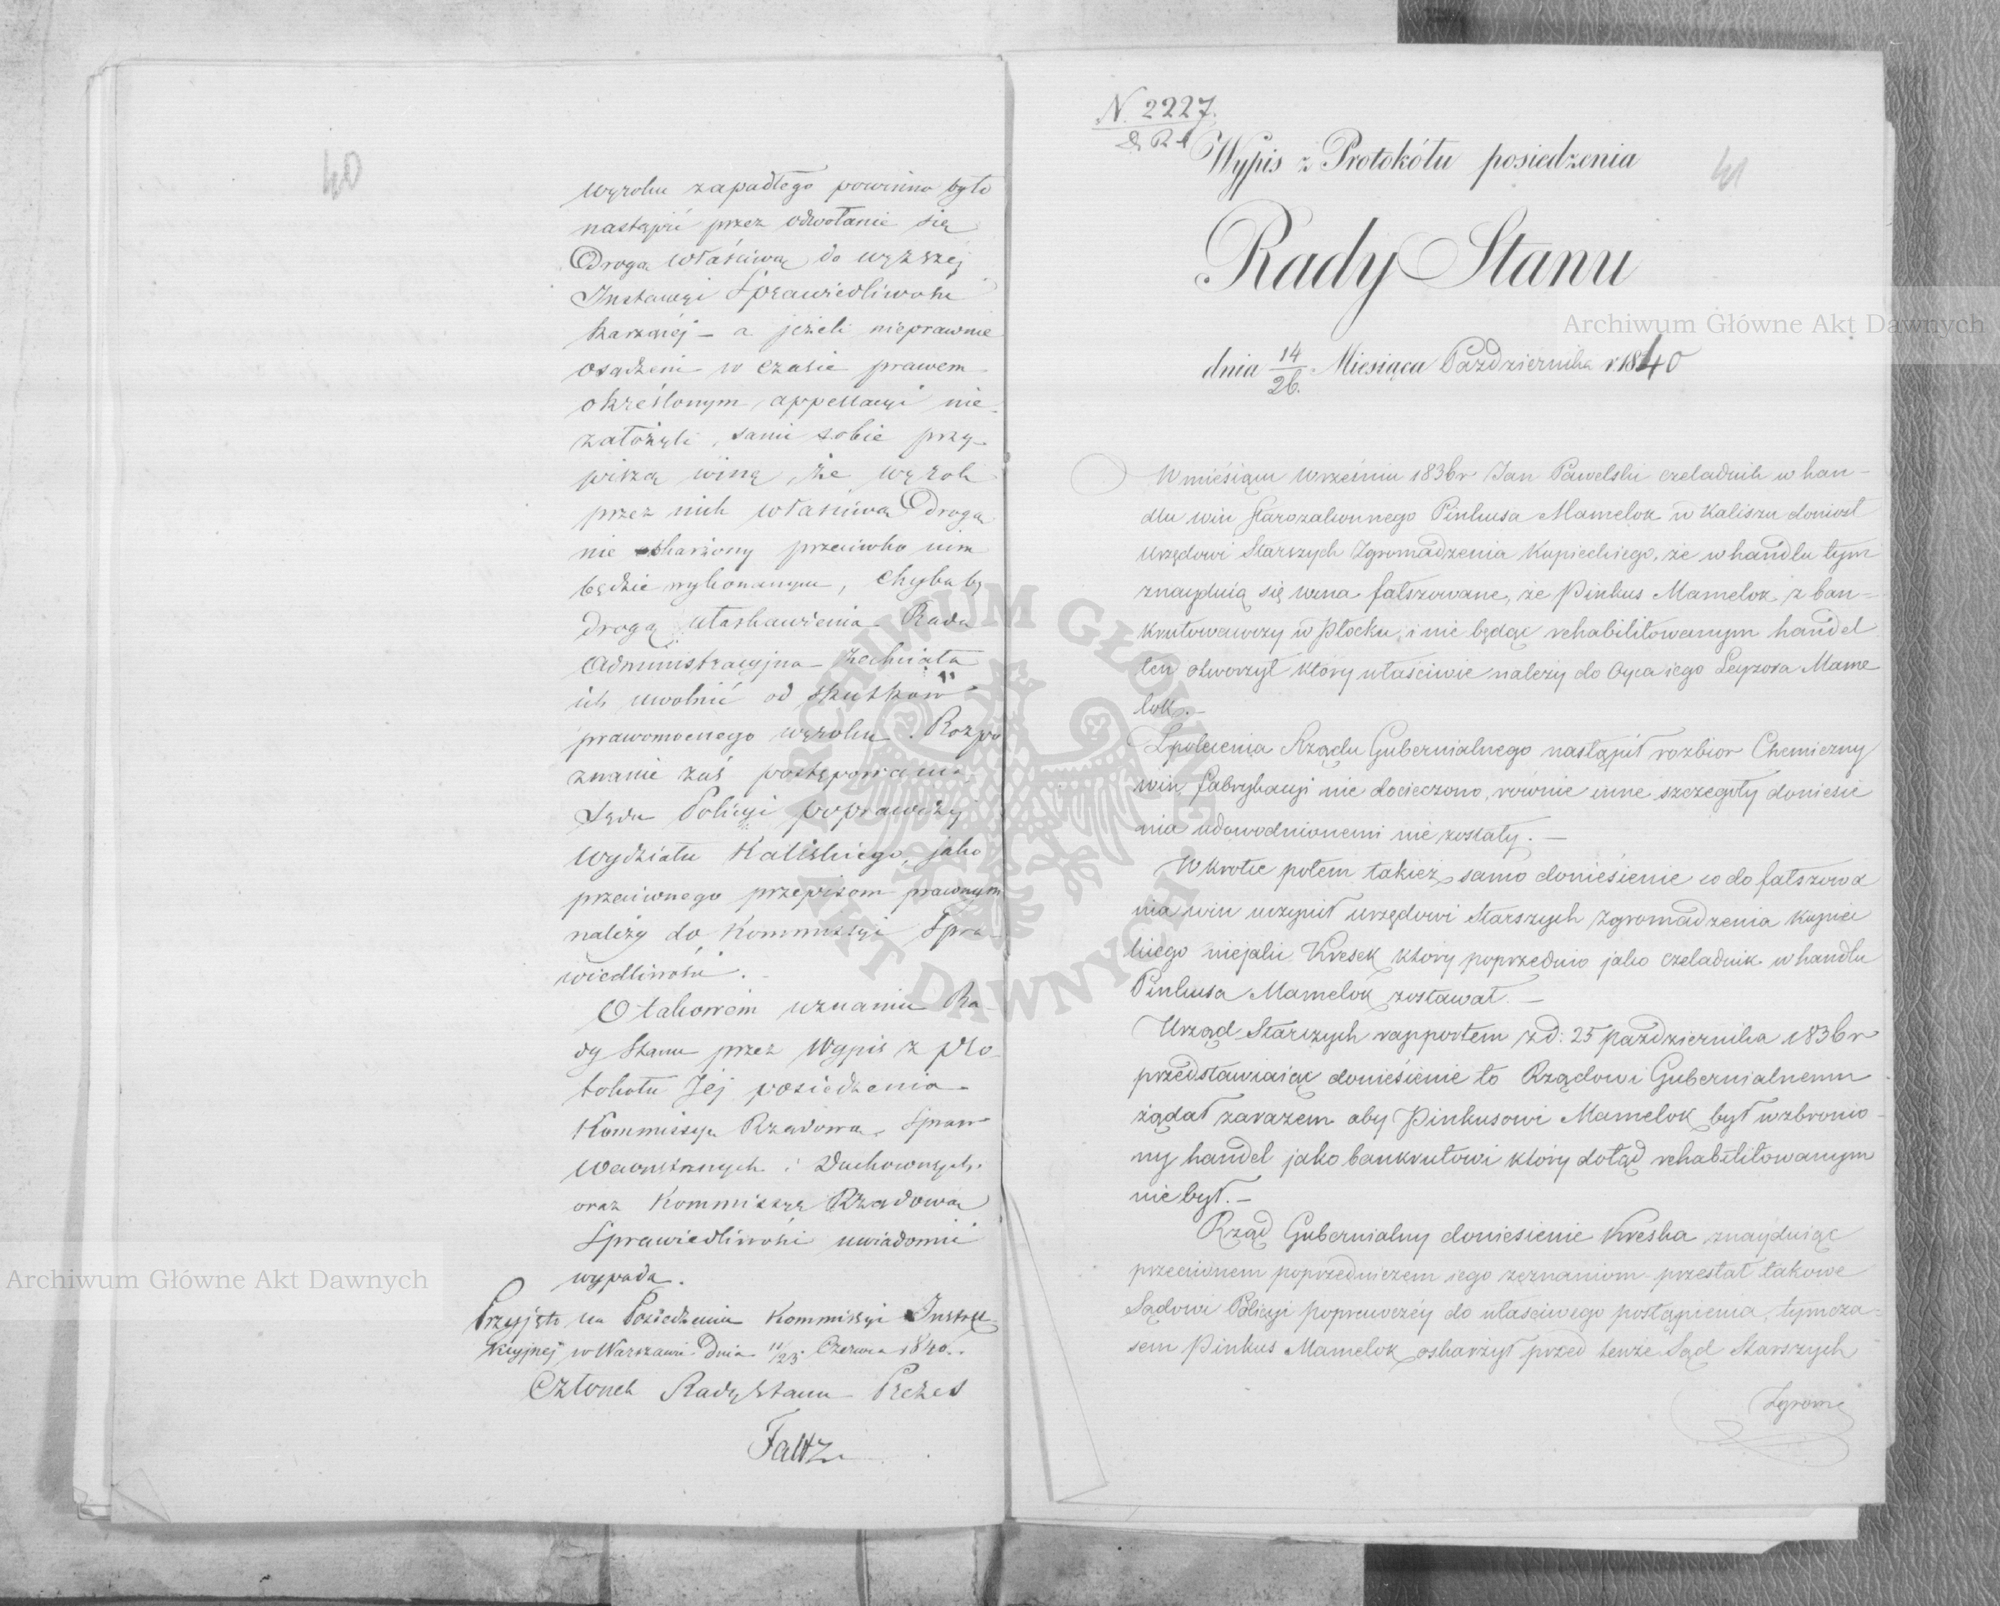 40
wyroku zapadłego powinno było
nastąpić przez odwołanie się
Drogą właściwą do wyższej
Instancyi Sprawiedliwości
karzącej – a jeżeli nieprawnie
osądzeni w czasie prawem
określonym, appellacyi nie-
założyli, sami sobie przy-
piszą winę, że wyrok
przez nich właściwą Drogą
nie skarżony przeciwko nim
będzie wykonanym, chyba by
drogą ułaskawienia Rada
Administracyjna zechciała
ich uwolnić od skutków
prawomocnego wyroku. Rozpo
znanie zaś postępowania
Sądu Policyi poprawczej
Wydziału Kaliskiego, jako
przeciwnego przepisom prawnym
należy do Kommissyi Spra-
wiedliwości.
O takowem uznaniu Ra-
dy Stanu przez Wypis z pro-
tokołu Jej posiedzenia
Kommissya Rządowa Spraw
Wewnętrznych i Duchownych
oraz Kommissyę Rządową
Sprawiedliwości uwiadomić
wypada.
Przyjęto na Posiedzeniu Kommissyi Instruk-
kcyjnej w Warszawie Dnia 11/23 Czerwca 1840.
Członek Rady Stanu Prezes
Faltz
N. 2227.
41
Wypis z Protokółu posiedzenia
Rady Stanu
dnia 14/26. Miesiąca Października r 1840
W miesiącu Wrześniu 1836 r Jan Pawelski czeladnik w han-
dlu win Starozakonnego Pinkusa Mamelok w Kaliszu doniósł
Urzędowi Starszych Zgromadzenia Kupieckiego, że w handlu tym
znayduią się wina fałszowane, że Pinkus Mamelok z ban-
krutowawszy w Płocku, i nie będąc rehabilitowanym handel
ten otworzył który właściwie należy do Oyca iego Leyzora Mame
lok. –
Z polecenia Rządu Gubernialnego nastąpił rozbior Chemiczny
win fabrykacyi nie docieczono, rownie inne szczegoły doniesie
nia udowodnionemi nie zostały. –
W krotce potem takież samo doniesienie co do fałszowa
nia win uczynił urzędowi Starszych Zgromadzenia Kupiec
kiego niejaki Kresek który poprzednio jako czeladnik w handlu
Pinkusa Mamelok zostawał. –
Urząd Starszych rapportem z d: 25 Października 1836 r
przedstawiaiąc doniesienie to Rządowi Gubernialnemu
żądał zarazem aby Pinkusowi Mamelok był wzbronio-
ny handel jako bankrutowi który dotąd rehabilitowanym
nie był. –
Rząd Gubernialny doniesienie Kreska znayduiąc
przeciwnem poprzedniczem iego zeznaniom przesłał takowe
Sądowi Policyi poprawczéy do właściwego postąpienia, tymcza-
sem Pinkus Mamelok oskarżył przed tenże Sąd Starszych
Zgroma
Archiwum Główne Akt Dawnych
Archiwum Główne Akt Dawnych
ARCHIWUM GŁÓWNE AKT DAWNYCH